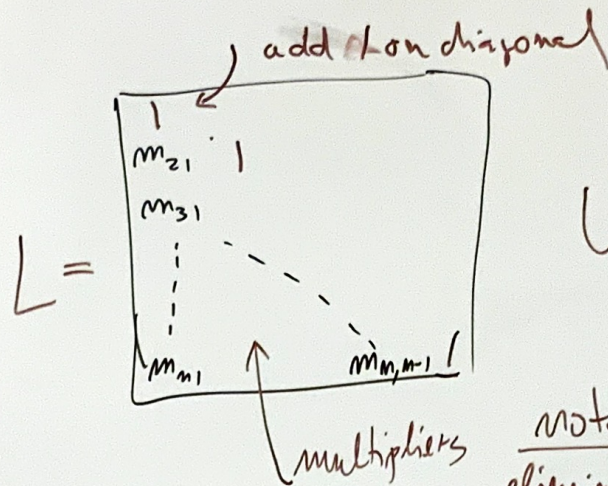 add 1 on diagonal
1
m21 1
m31
L =
mn1 mn,n-1 1
multipliers
U